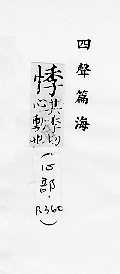 四聲篇海
悸
其季切
心動也
(心部．R360)